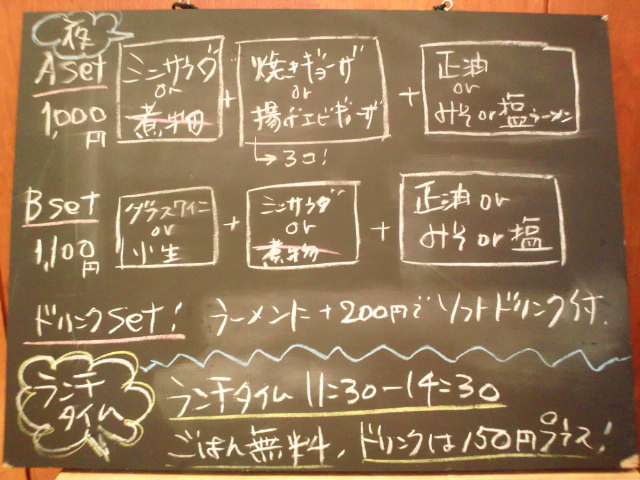 夜
A Set
1,000円
ミニサラダ
or
煮物
+
焼きギョーザ
or
揚げエビギョーザ
→3コ!
+
正油
or
みそ or 塩ラーメン
B set
1,100円
グラスワイン
or
小生
+
ミニサラダ
or
煮物
+
正油 or
みそ or 塩
ドリンクset! ラーメンに+200円でソフトドリンク付.
ランチ
タイム
ランチタイム 11:30-14:30
ごはん無料, ドリンクは150円プラス!